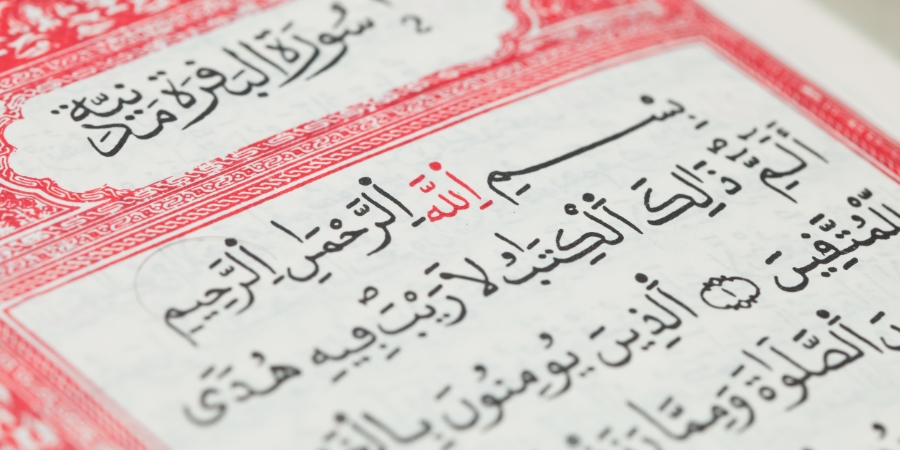 سُورَةُ الْبَقَرَةِ مَدَنِيَّة 2
بِسْمِ اِللَّهِ اِلرَّحْمَٰنِ اِلرَّحِيمِ
أَلَٓمِّٓ ذَٰلِكَ اَلْكِتَٰبُ لَا رَيْبَ فِيهِ هُدىً
لِّلْمُتَّقِينَ 1 اَلذِينَ يُومِنُونَ
اَلصَّلَوٰةَ وَمِمَّا